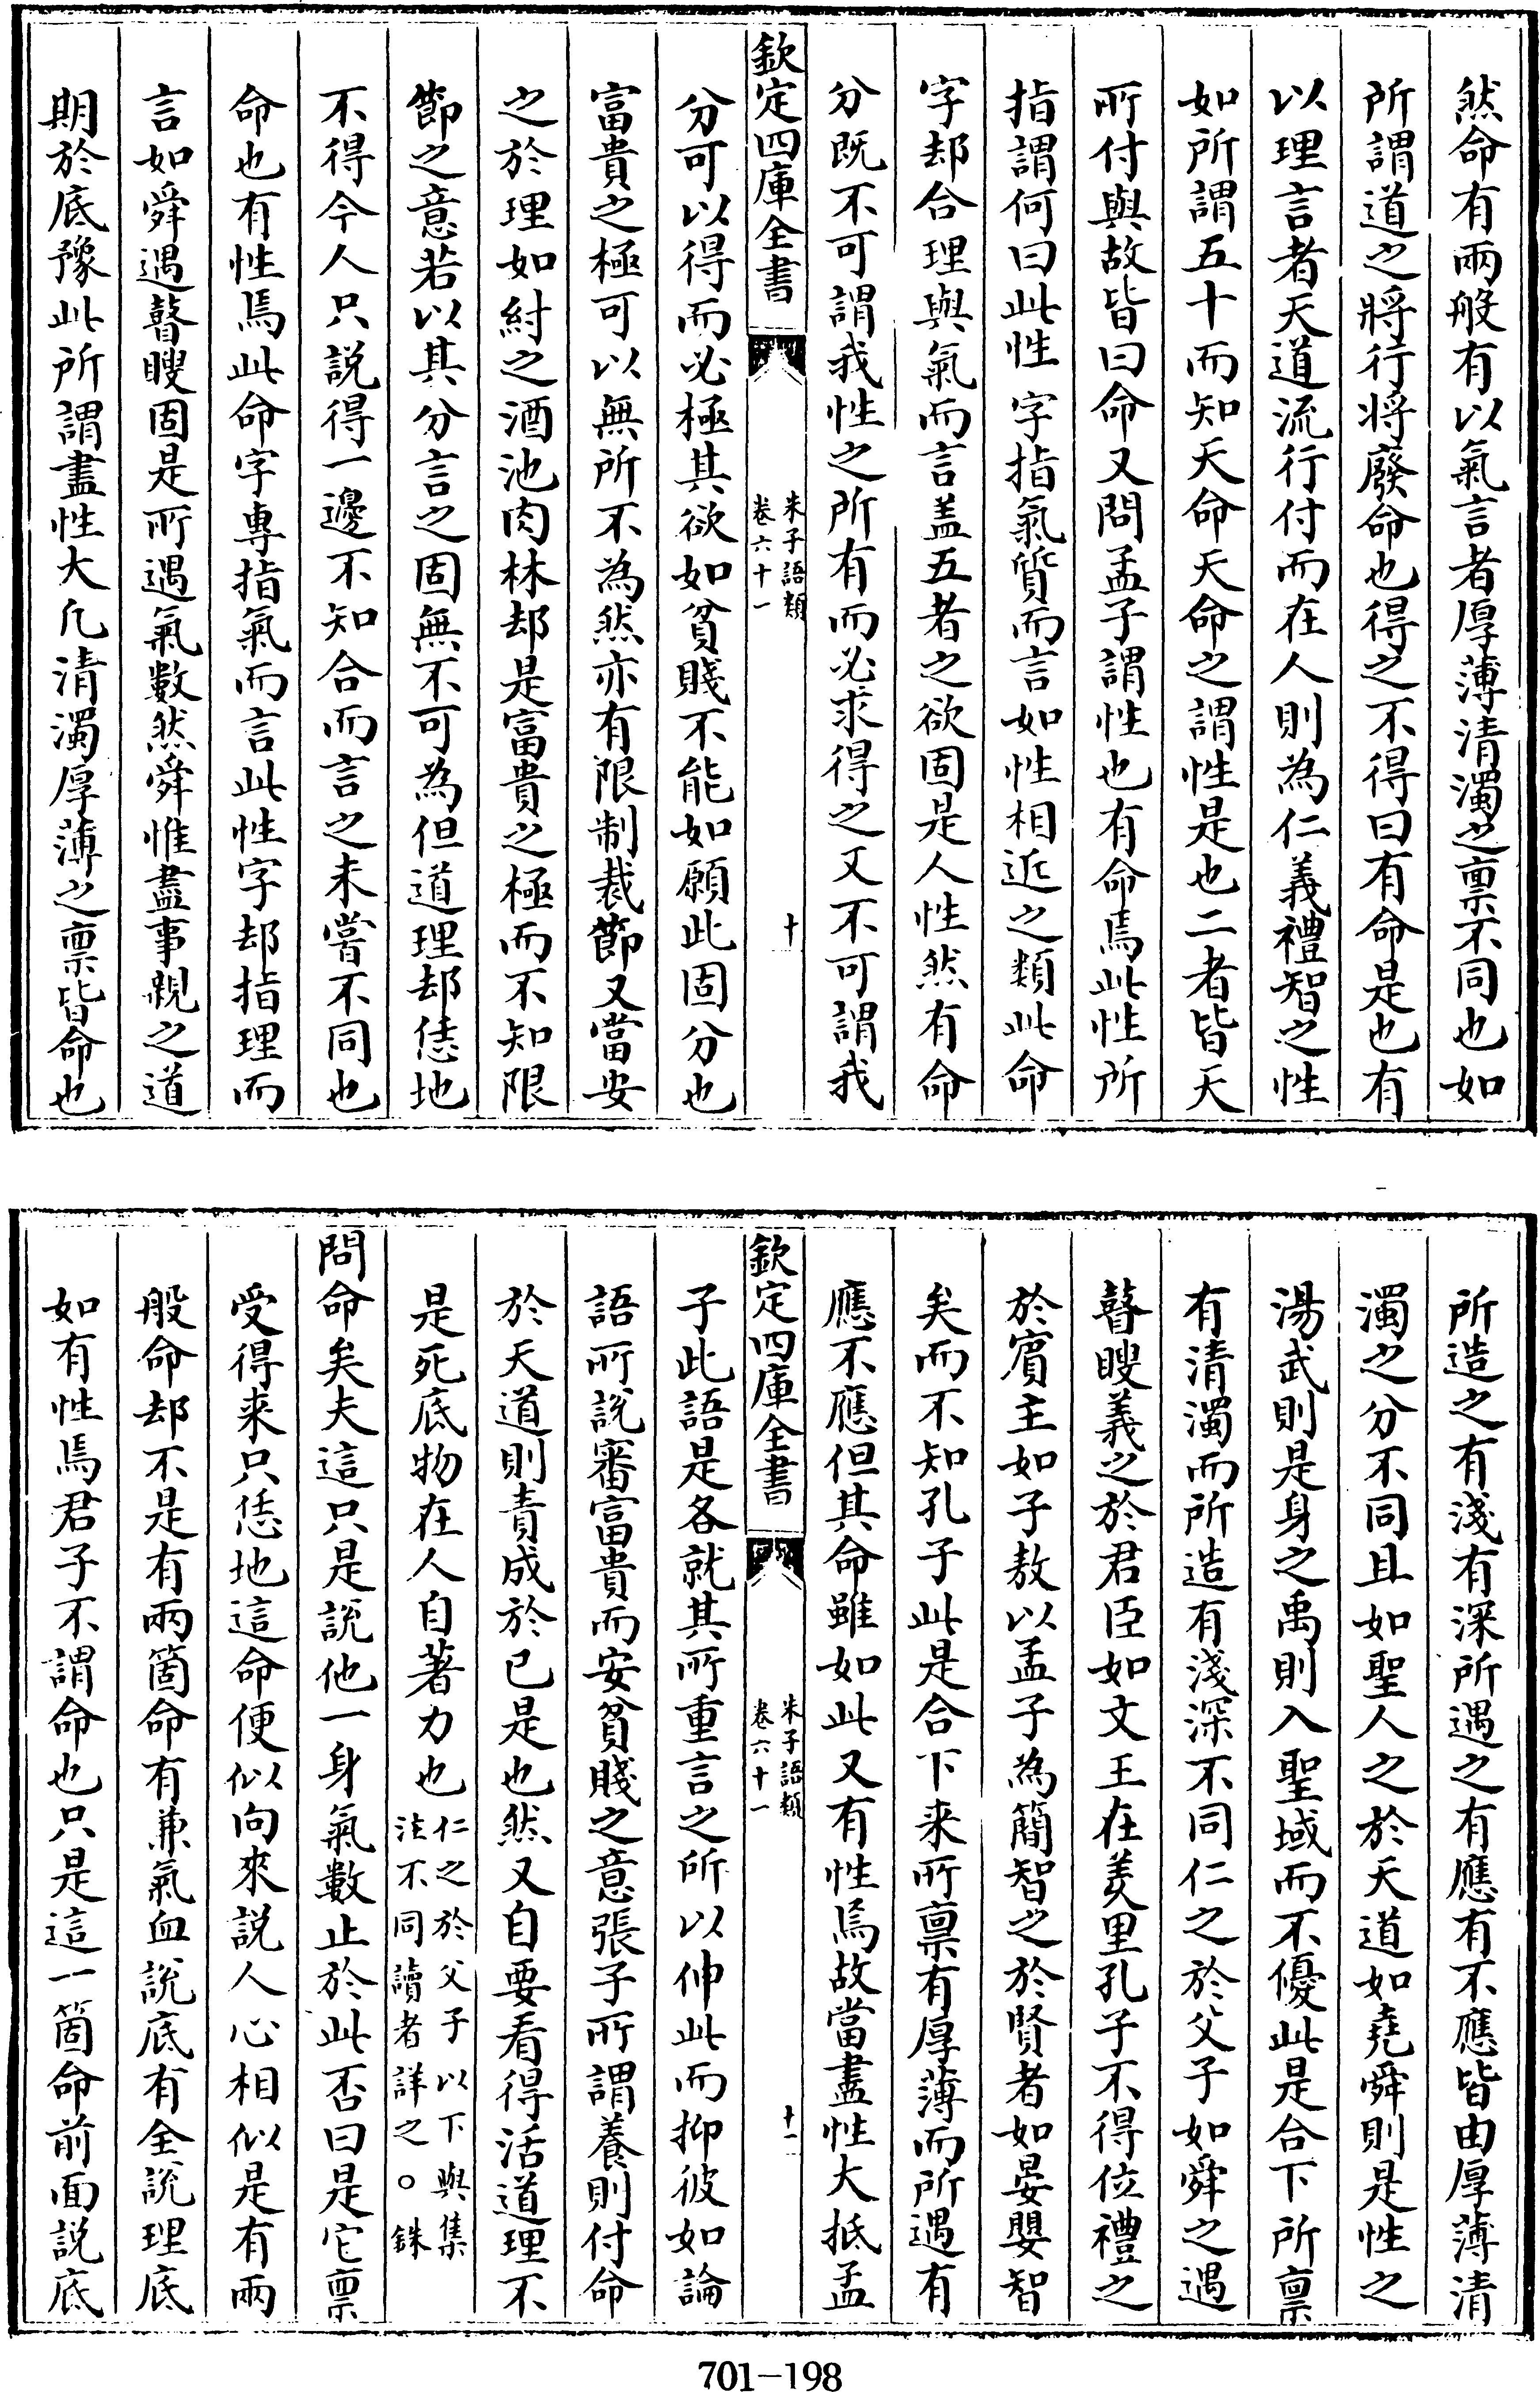 然命有兩般有以氣言者厚薄清濁之禀不同也如
所謂道之將行將廢命也得之不得曰有命是也有
以理言者天道流行付而在人則為仁義禮智之性
如所謂五十而知天命天命之謂性是也二者皆天
所付與故皆曰命又問孟子謂性也有命焉此性所
指謂何曰此性字指氣質而言如性相近之類此命
字却合理與氣而言盖五者之欲固是人性然有命
分既不可謂我性之所有而必求得之又不可謂我
欽定四庫全書
朱子語類
卷六十一
十
分可以得而必極其欲如貧賤不能如願此固分也
富貴之極可以無所不為然亦有限制裁節又當安
之於理如紂之酒池肉林却是富貴之極而不知限
節之意若以其分言之固無不可為但道理却恁地
不得今人只説得一邊不知合而言之未嘗不同也
命也有性焉此命字專指氣而言此性字却指理而
言如舜遇瞽瞍固是所遇氣數然舜惟盡事親之道
期於底豫此所謂盡性大凡清濁厚薄之禀皆命也
所造之有淺有深所遇之有應有不應皆由厚薄清
濁之分不同且如聖人之於天道如堯舜則是性之
湯武則是身之禹則入聖域而不優此是合下所禀
有清濁而所造有淺深不同仁之於父子如舜之遇
瞽瞍義之於君臣如文王在羑里孔子不得位禮之
於賓主如子敖以孟子為簡智之於賢者如晏嬰智
矣而不知孔子此是合下来所禀有厚薄而所遇有
應不應但其命雖如此又有性焉故當盡性大抵孟
欽定四庫全書
朱子語類
卷六十一
十一
子此語是各就其所重言之所以伸此而抑彼如論
語所說審富貴而安貧賤之意張子所謂養則付命
於天道則責成於己是也然又自要看得活道理不
是死底物在人自著力也仁之於父子以下與集
注不同讀者詳之○銖
問命矣夫這只是說他一身氣數止於此否曰是它禀
受得来只恁地這命便似向來説人心相似是有兩
般命却不是有兩箇命有兼氣血說底有全說理底
如有性焉君子不謂命也只是這一箇命前面説底
701-198